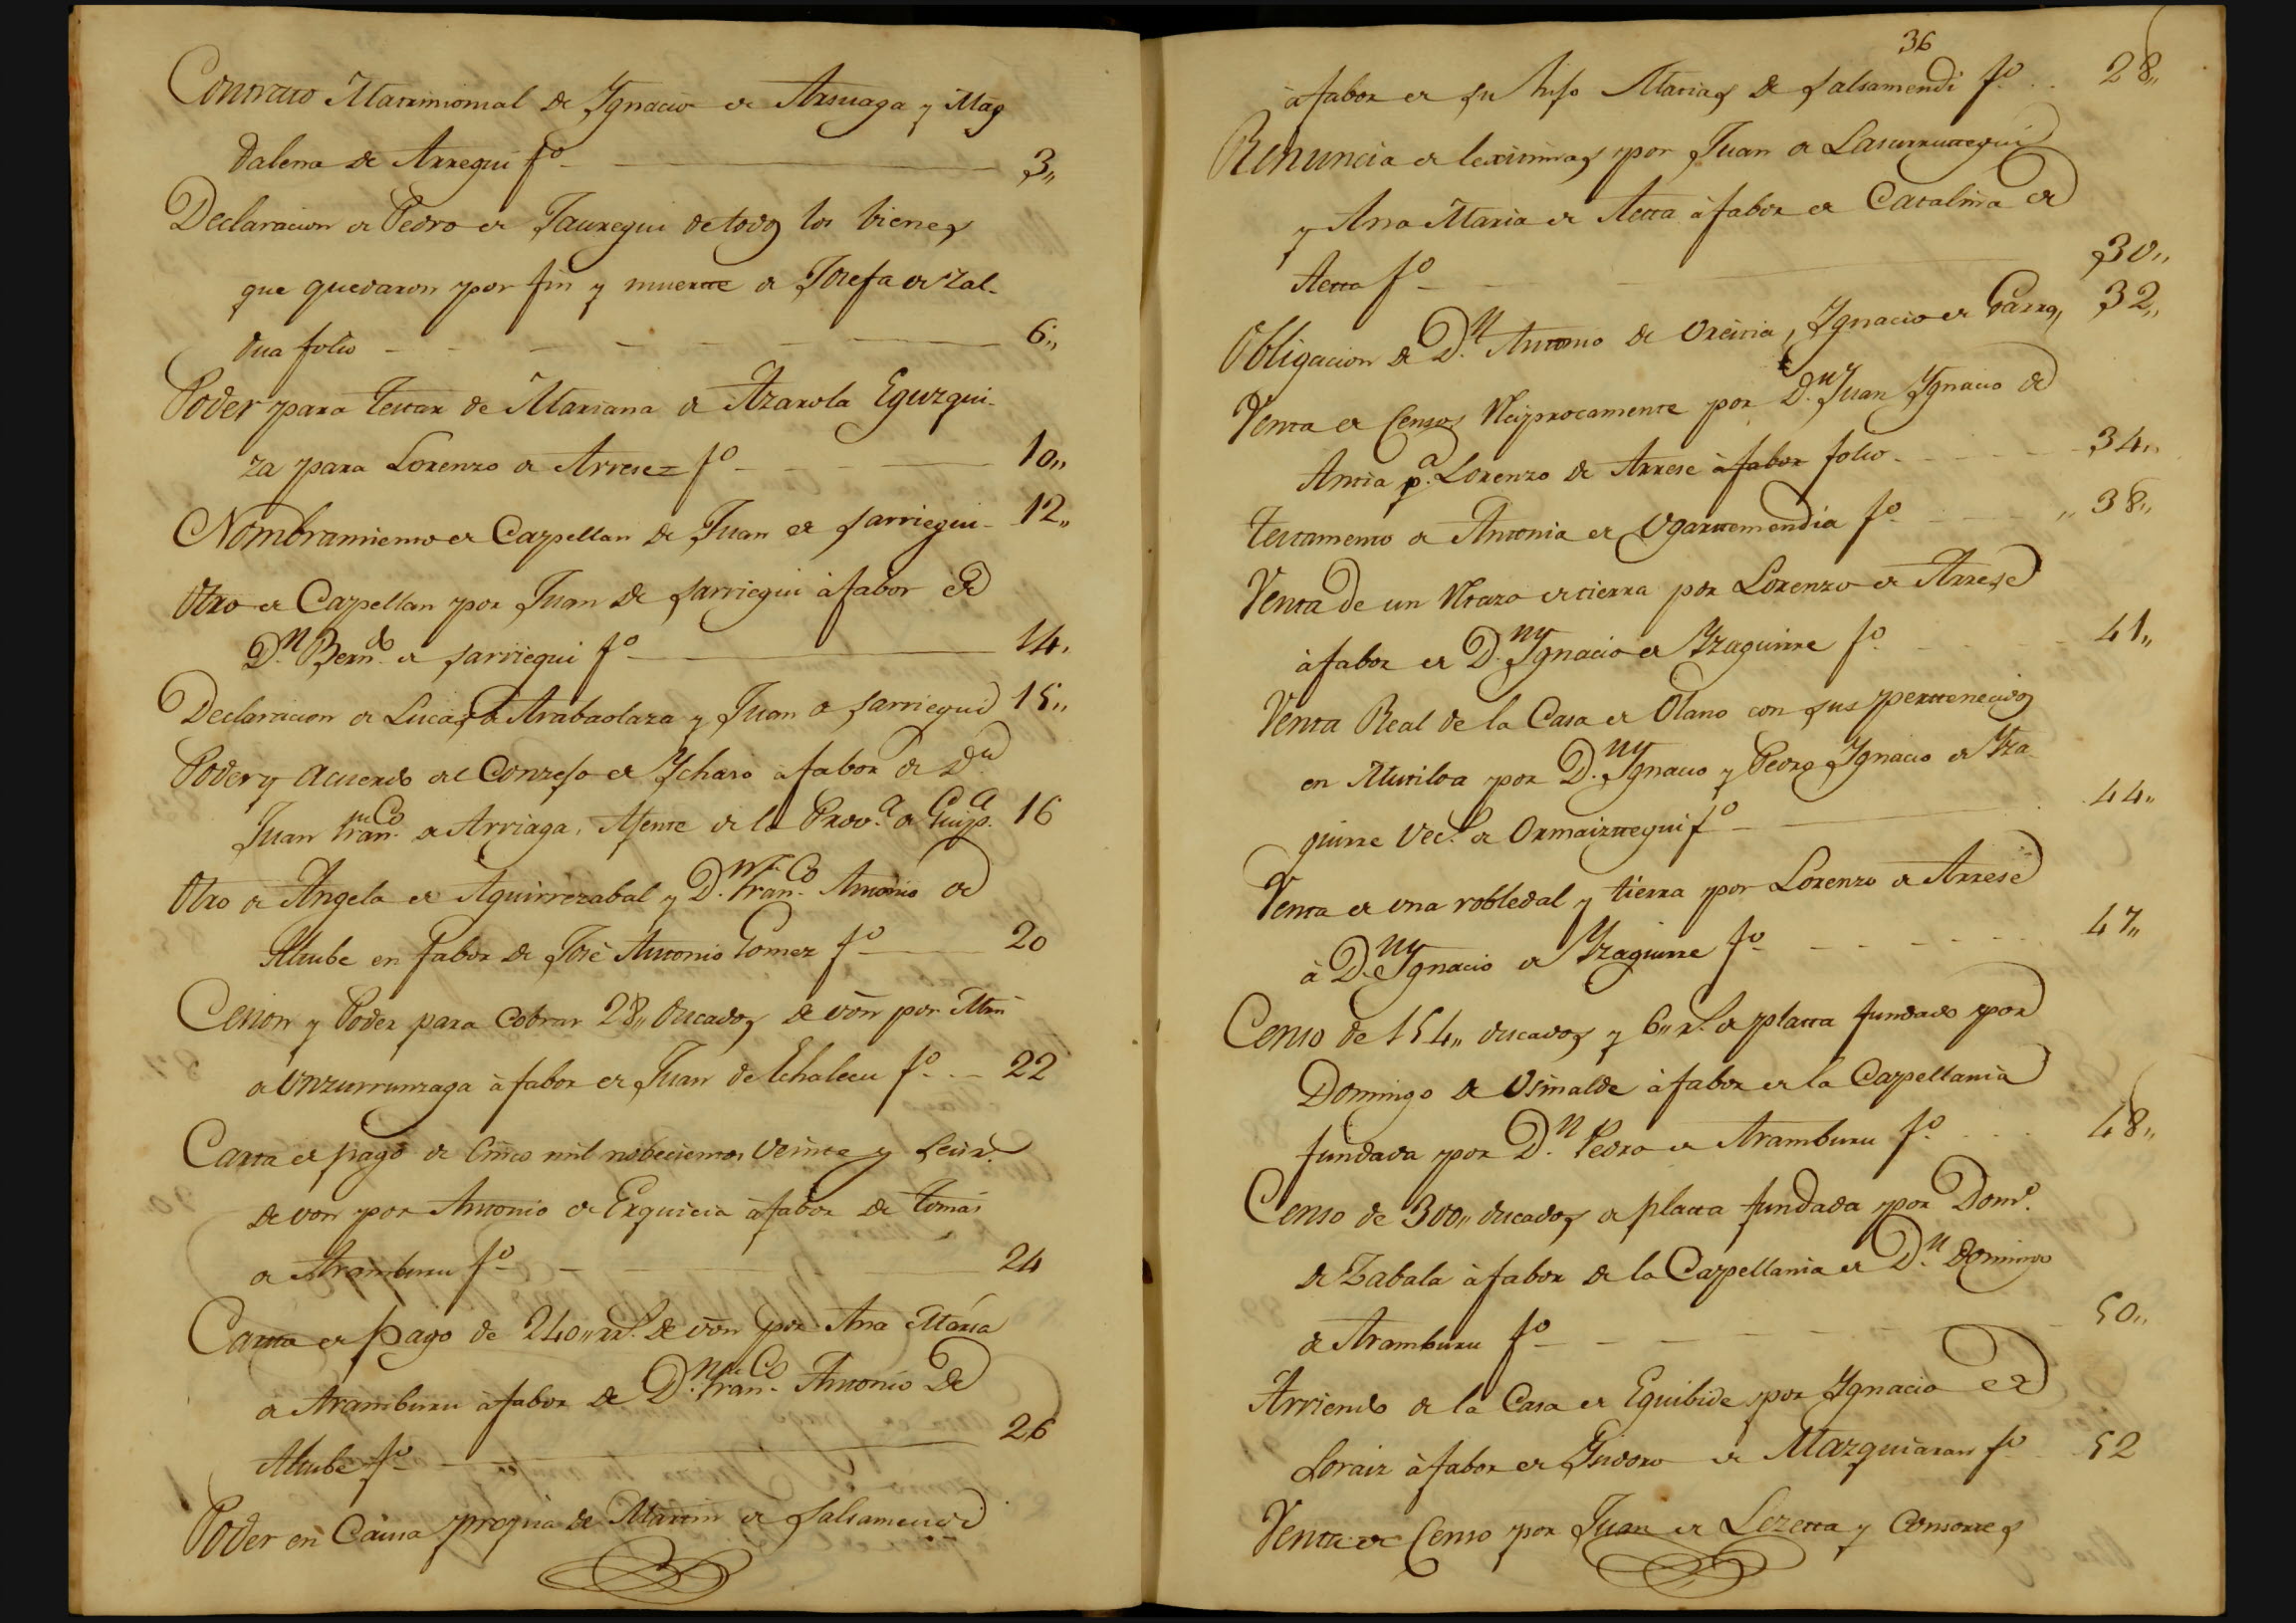 Contrato Matrimonial de Ygnacio de Arsuaga y Mag
dalena de Arregui fº 3,,
Declaracion de Pedro de Jauregui de todos los bienes
que quedaron por fin y muerte de Josefa de Zal-
dua folio 6,,
Poder para testar de Mariana de Azarola Eguzqui-
za para Lorenzo de Arrese fº 10,,
Nombramiento de Capellan de Juan de Sarriegui 12,,
Otro de Capellan por Juan de Sarriegui à fabor de
Dn Berndo de Sarriegui fº 14.
Declaracion de Lucas de Arabaolaza y Juan de Sarriegui 15,,
Poder y acuerdo del Conzejo de Ychaso à fabor de Dn
Juan Franco de Arriaga, Ajente de la Prova de Guipa 16
Otro de Angela de Aguirrezabal y Dn Franco Antonio de
Alcube en fabor de José Antonio Gomez fº 20
Cesion y Poder para cobrar 28,, ducados de von por Mrn
de Unzurrunzaga à fabor de Juan de Echalecu fº 22
Carta de pago de cinco mil nobecientos veinte y seis rs
de von por Antonio de Ezquicia à fabor de Tomas
de Aramburu fº 24
Carta de pago de 240,, rs de von por Ana Maria
de Aramburu à fabor de Dn Franco Antonio de
Alcube fº 26
Poder en Causa propria de Martin de Salsamendi
36
à fabor de su hijo Matias de Salsamendi fº 28,,
Renuncia de lexitimas por Juan de Lasurrutegui
y Ana Maria de Aetta à fabor de Catalina de
Aetta fº 30,,
Obligacion de Dn Antonio de Urcina, Ygnacio de Parra, 32,,
Venta de Censos Reciprocamente por Dn Juan Ygnacio de
Antia pa Lorenzo de Arrese à fabor folio 34,,
Testamento de Antonia de Ugartemendia fº ,,38,,
Venta de un Retazo de tierra por Lorenzo de Arrese
à fabor de Dn Ygnacio de Yzaguirre fº 41,,
Venta Real de la Casa de Olano con sus pertenecidos
en Mutiloa por Dn Ygnacio y Pedro Ygnacio de Yza-
guirre vecs de Ormaiztegui fº 44,,
Venta de una robledal y tierra por Lorenzo de Arrese
à Dn Ygnacio de Yzaguirre fº 47,,
Censo de 154,, ducados y 6,, rs de platta fundado por
Domingo de Usinalde à fabor de la Capellania
fundada por Dn Pedro de Aramburu fº 48,,
Censo de 300,, ducados de platta fundada por Domo
de Zabala à fabor de la Capellania de Dn Domingo
de Aramburu fº 50,,
Arriendo de la Casa de Eguibide por Ygnacio de
Loraiz à fabor de Ysidoro de Mazquiaran fº 52
Venta de Censo por Juan de Lezetta y Consortes